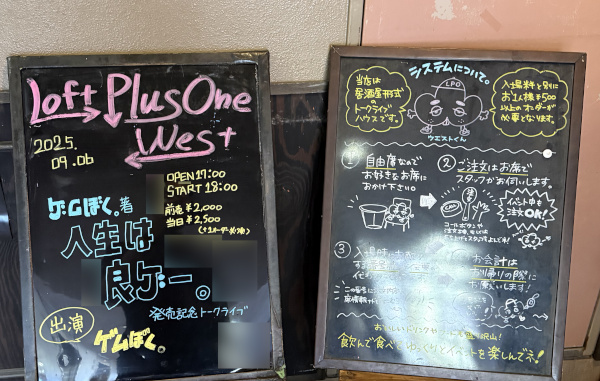 Loft PlusOne
West
2025.
09.06
OPEN 17:00
START 18:00
前売 ¥2,000
当日 ¥2,500
ゲムぼく。著
人生は
良ゲー。
発売記念トークライブ
出演
ゲムぼく。
システムについて。
当店は
居酒屋形式
の
トークライブ
ハウスです。
LPO
ウエストくん
入場料と別に
お1人様¥500
以上のオーダーが
必要となります。
① 自由席なので
お好きなお席に
おかけ下さい
② ご注文はお席で
スタッフがお伺いします。
イベント中も
注文OK!
コールボタン
③
お会計は
お帰りの際に
お願いします!
飲んで食べてゆっくりイベントを楽しんでネ!